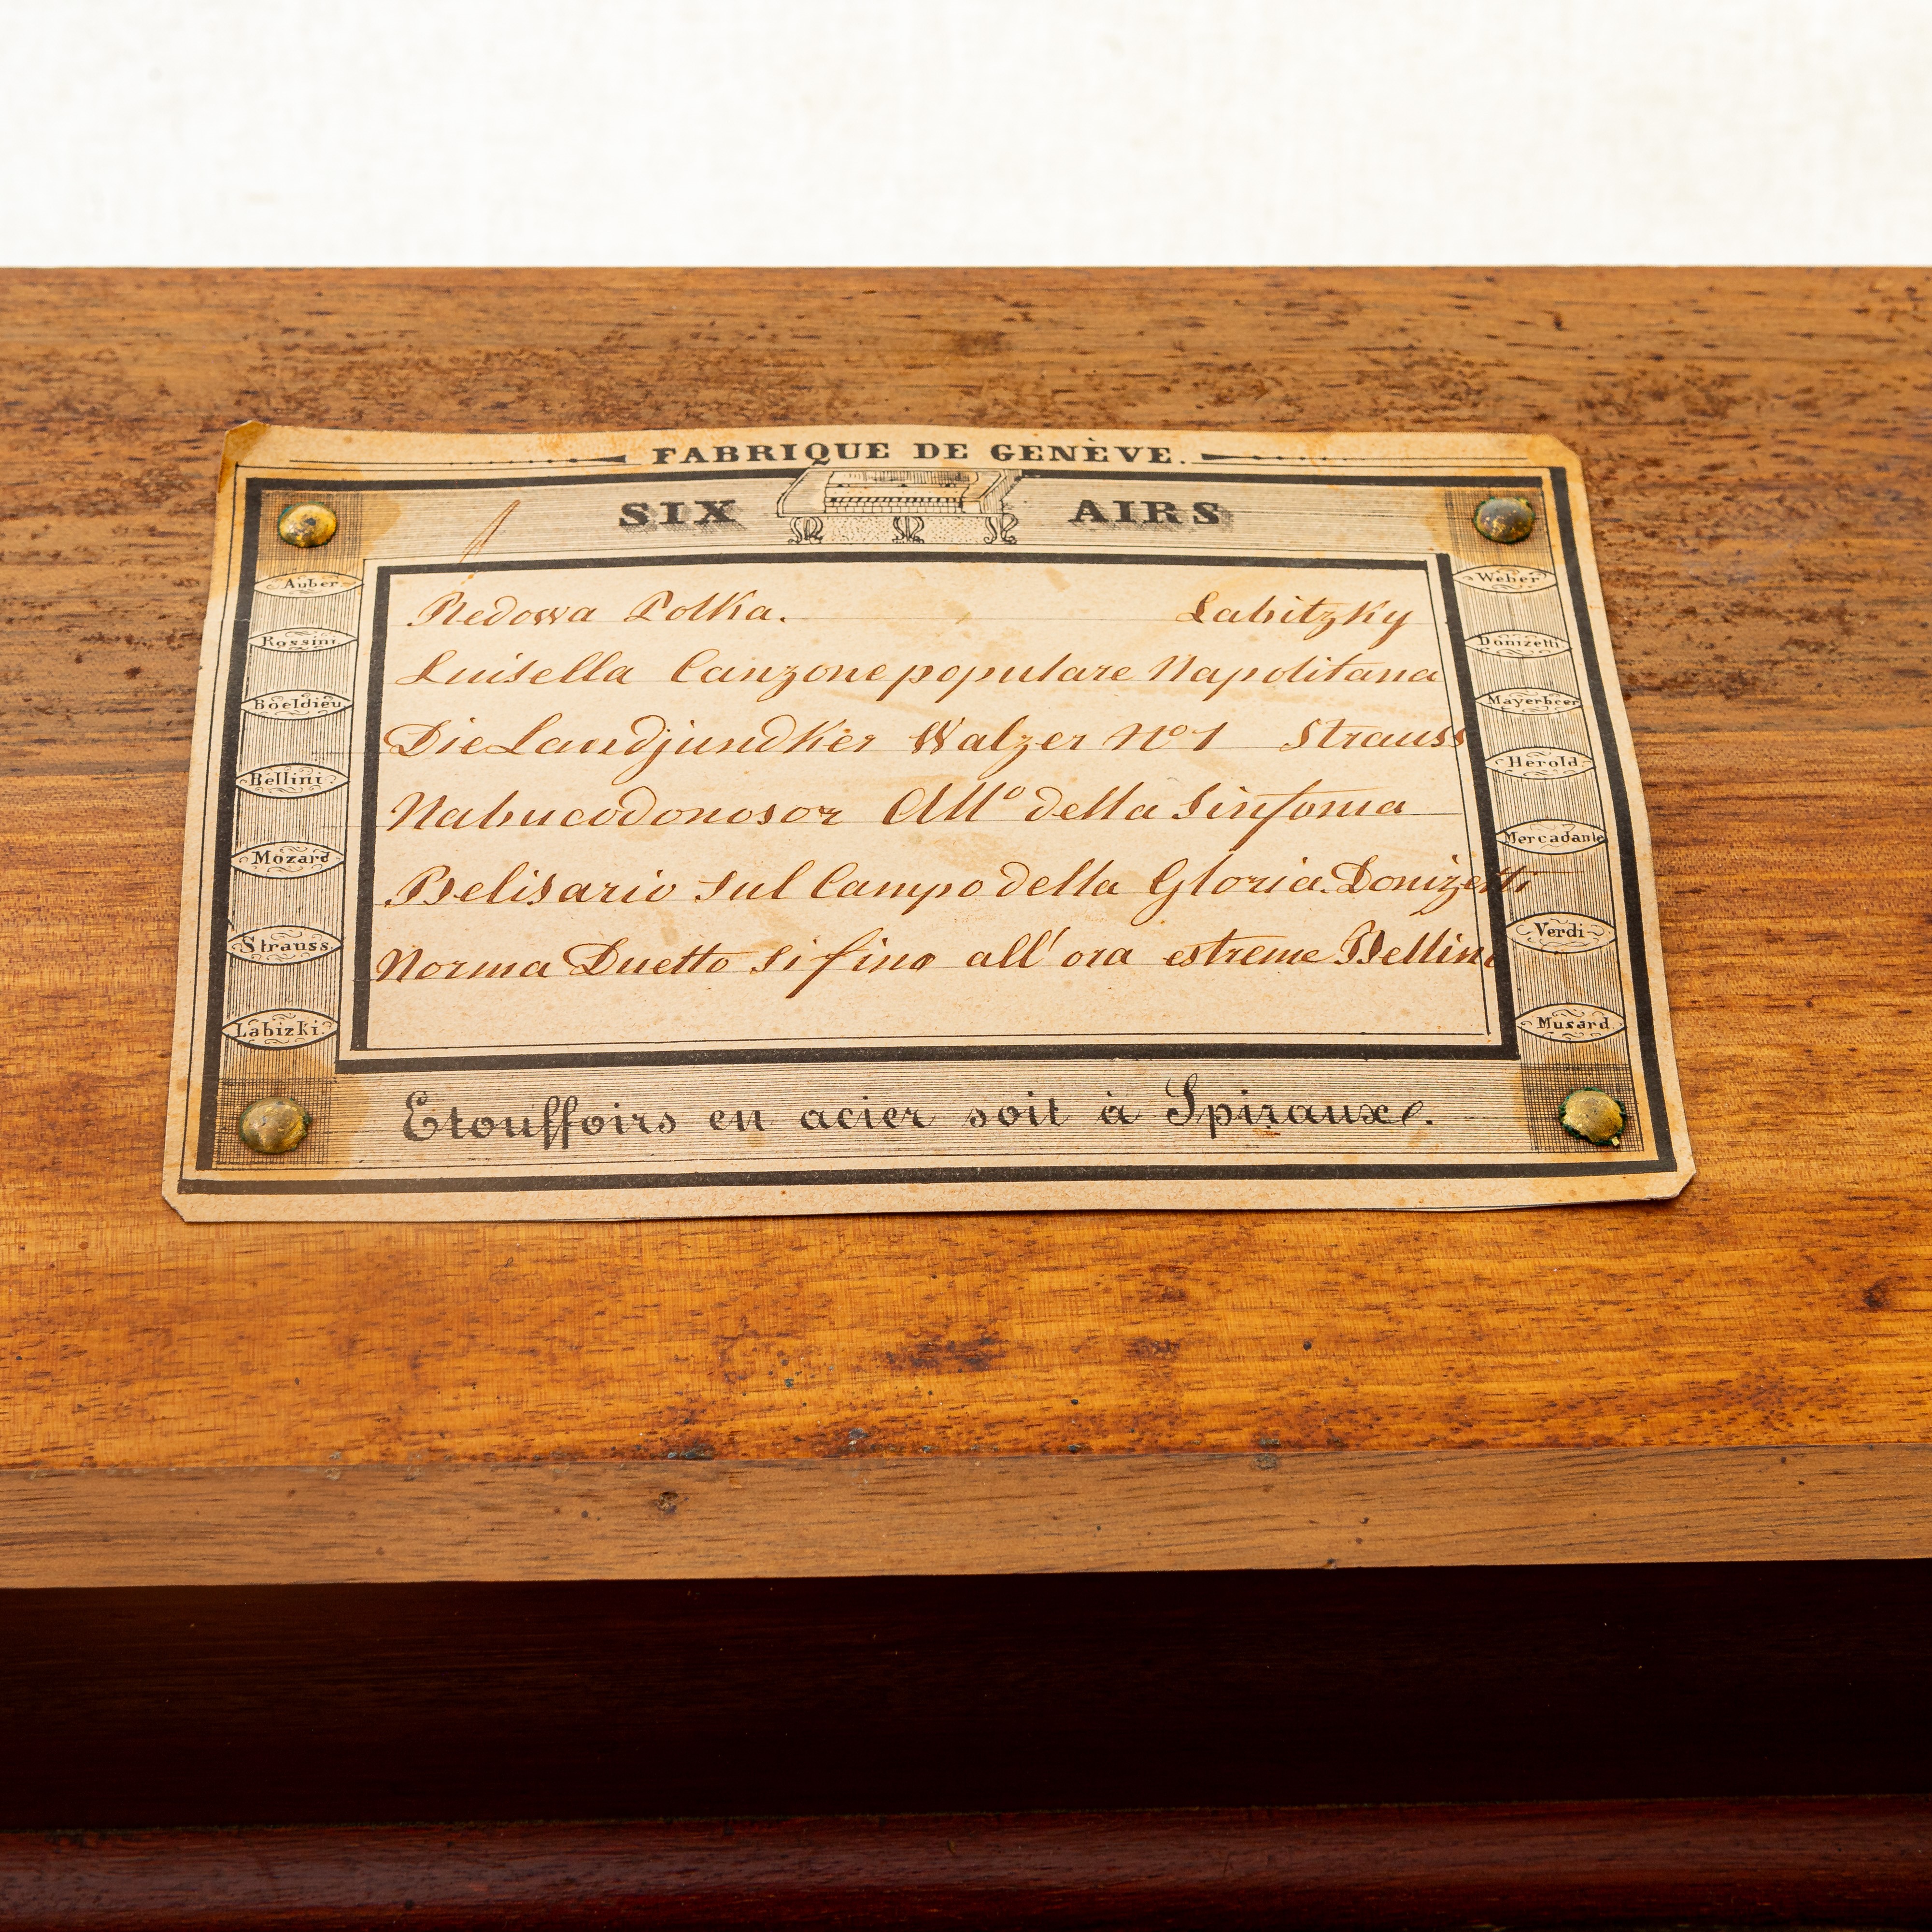 FABRIQUE DE GENÈVE.
SIX AIRS
Auber
Rossini
Boeldieu
Bellini
Mozard
Strauss
Labizki
Redowa Polka. Labitzky
Luisella Canzone populare Napolitana
Die Landjundker Walzer No 1 Strauss
Nabucodonosor All° della Sinfonia
Belisario Sul Campo della Gloria. Donizetti
Norma Duetto Si fino all' ora estreme Bellini
Weber
Donizetti
Mayerbeer
Herold
Mercadante
Verdi
Musard
Etouffoirs en acier soit à Spiraux.